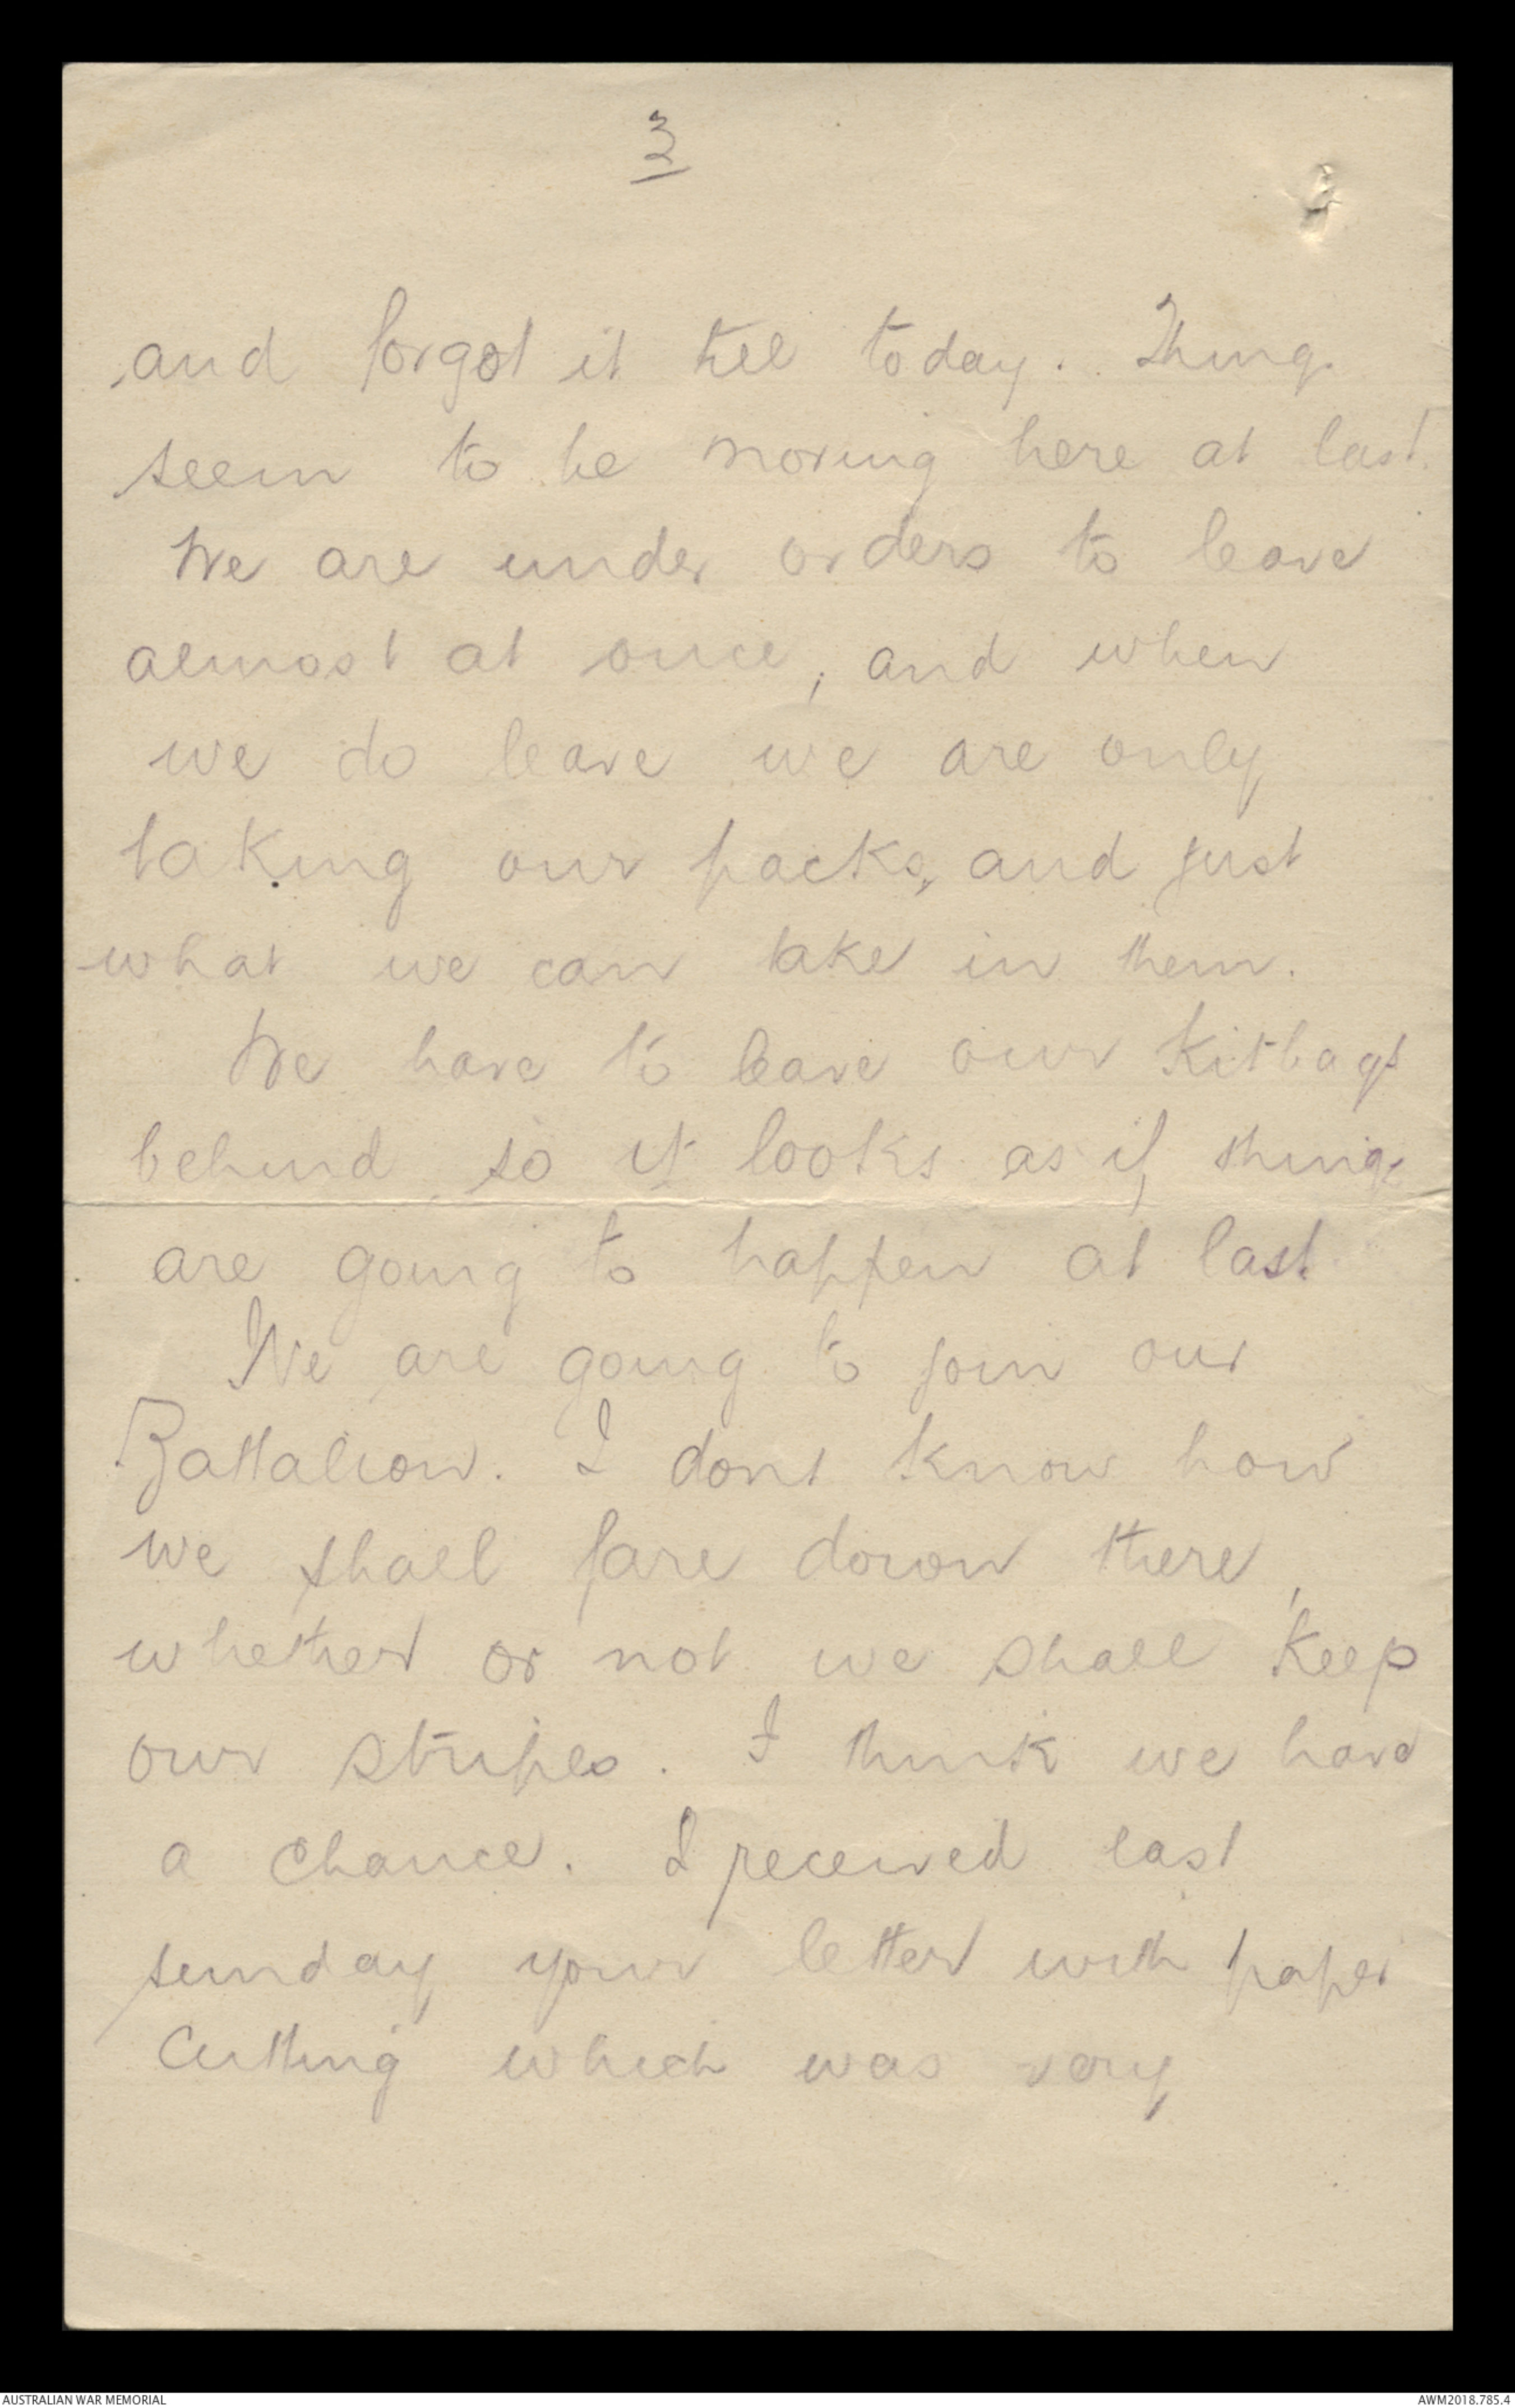 3
and forgot it till today. Things
seem to be moving here at last.
We are under orders to leave
almost at once, and when
we do leave we are only
taking our packs, and just
what we can take in them.
We have to leave our Kitbags
behind so it looks as if things
are going to happen at last.
We are going to join our
Battalion. I dont know how
we shall fare down there,
whether or not we shall keep
our stripes. I think we have
a chance. I received last
sunday your letter with paper
Cutting which was very
AUSTRALIAN WAR MEMORIAL
AWM2018.785.4